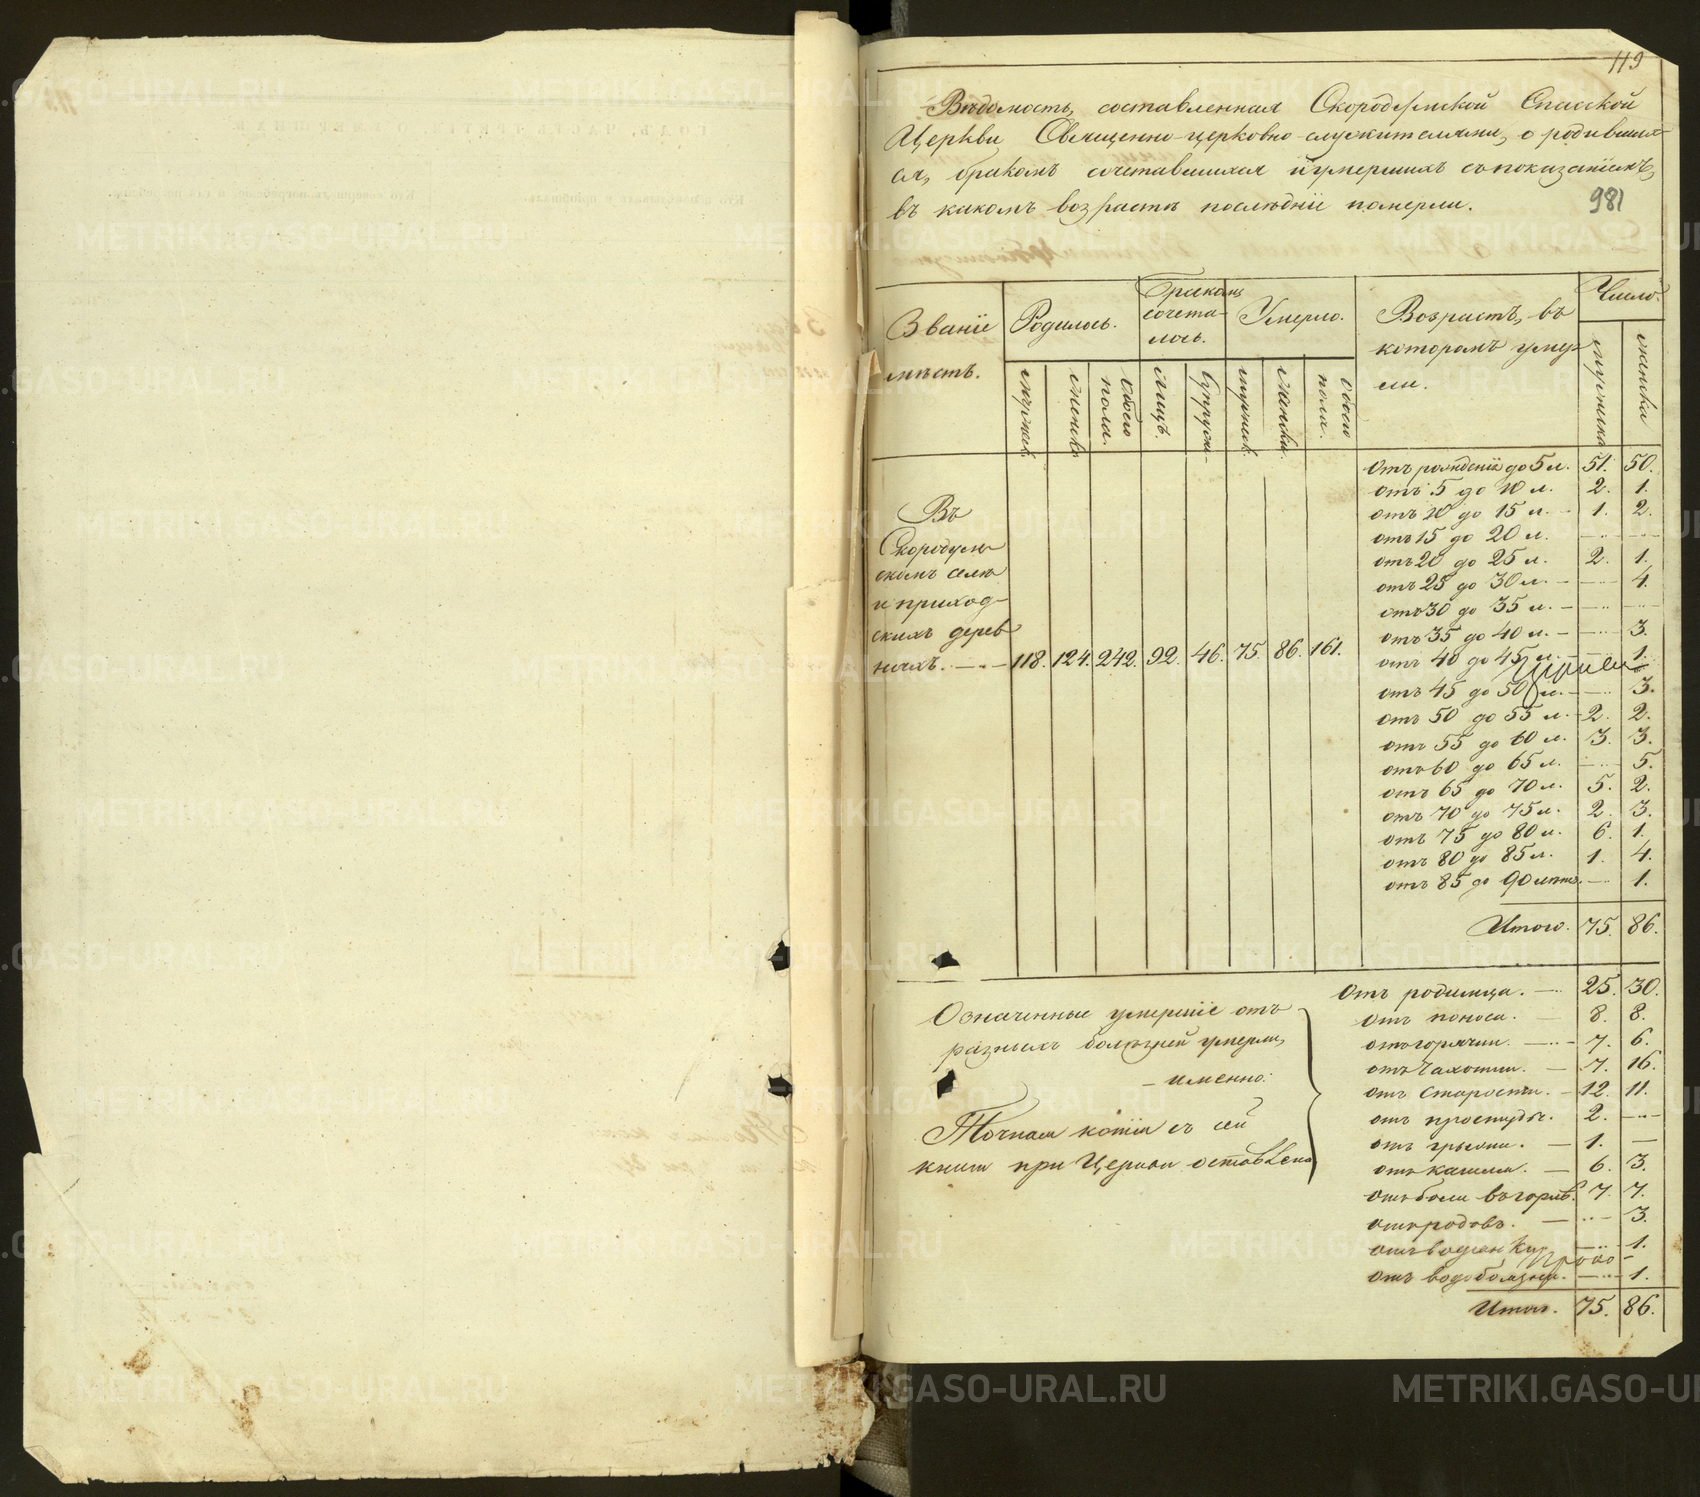 119
Вѣдомость, составленная Скородумской Спасской
Церкви Священно-церковно-служителями, о родивших-
ся, бракомъ сочетавшихся и умершихъ съ показаніемъ,
въ какомъ возрастѣ послѣдніе померли.
981
Званіе мѣстъ.
Родилось.
Бракомъ сочета-лось.
Умерло.
Возрастъ, въ
которомъ умер-
ли.
Число.
мужска
женска
мужск.
женск.
обоего пола.
лицъ.
супруж-
мужск.
женска.
обоего пола.
Въ
Скородум-
скомъ селѣ
и приход-
скихъ дерев-
няхъ. — 118. 124. 242. 92. 46. 75. 86. 161.
отъ рожденія до 5 л. 51. 50.
отъ 5 до 10 л. 2. 1.
отъ 10 до 15 л. – 1. 2.
отъ 15 до 20 л. — —
отъ 20 до 25 л. 2. 1.
отъ 25 до 30 л. — — 4.
отъ 30 до 35 л. — — —
отъ 35 до 40 л. — — 3.
отъ 40 до 45 л. — 1.
отъ 45 до 50 л. — 3.
отъ 50 до 55 л. 2. 2.
отъ 55 до 60 л. 3. 3.
отъ 60 до 65 л. — 5.
отъ 65 до 70 л. 5. 2.
отъ 70 до 75 л. 2. 3.
отъ 75 до 80 л. 6. 1.
отъ 80 до 85 л. 1. 4.
отъ 85 до 90 лѣтъ. — 1.
Итого. 75. 86.
Означенные умершіе отъ
разныхъ болѣзней умерли,
– именно:
Точная копія съ сей
книги при Церкви оставлена
отъ родимца. — 25. 30.
отъ поноса. — 8. 8.
отъ горячки. — 7. 6.
отъ чахотки. — 7. 16.
отъ старости. – 12. 11.
отъ простуды. 2. —
отъ грыжи. — 1. —
отъ кашля. — 6. 3.
отъ боли въ горлѣ. 7. 7.
отъ родовъ. — — 3.
отъ водянки — 1.
отъ водобоязни. — 1.
Итого. 75. 86.
METRIKI.GASO-URAL.RU